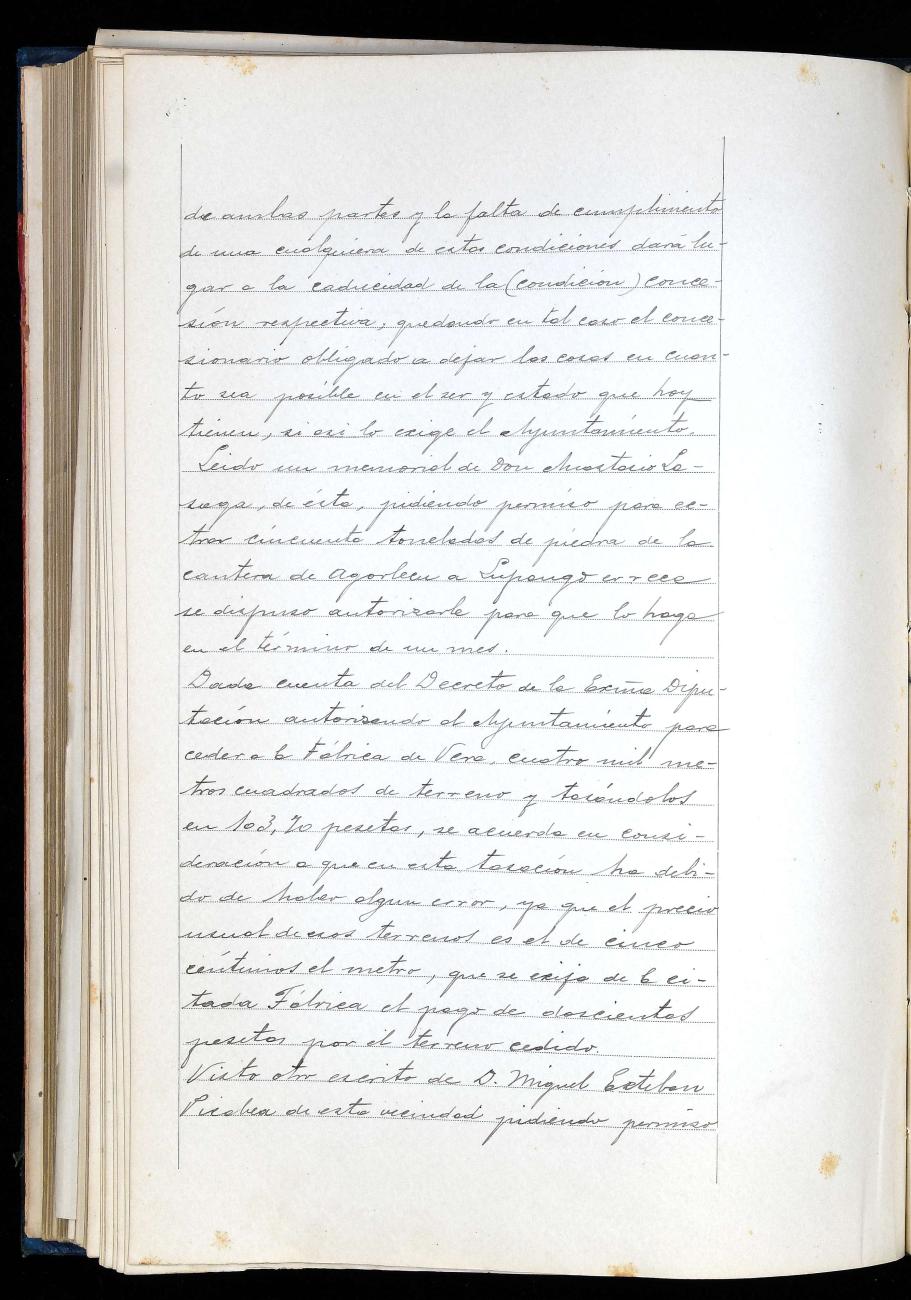 de ambas partes y la falta de cumplimiento
de una cualquiera de estas condiciones dará lu-
gar a la caducidad de la (condición) conce-
sión respectiva, quedando en tal caso el conce-
sionario obligado a dejar las cosas en cuan-
to sea posible en el ser y estado que hoy
tienen, si asi lo exige el Ayuntamiento.
Leido un memorial de Don Anastasio La-
saga, de ésta, pidiendo permiso para ex-
traer cincuenta toneladas de piedra de la
cantera de Agorlecu a
se dispuso autorizarle para que lo haga
en el término de un mes.
Dada cuenta del Decreto de la Excma Dipu-
tación autorizando al Ayuntamiento para
ceder a la Fábrica de Vera, cuatro mil me-
tros cuadrados de terreno y tasándolos
en 103,70 pesetas, se acuerda en consi-
deración a que en esta tasación ha debi-
do de haber algun error, ya que el precio
usual de esos terrenos es el de cinco
céntimos el metro, que se exija de la ci-
tada Fábrica el pago de doscientas
pesetas por el terreno cedido.
Visto otro escrito de D. Miguel Esteban
Picabea de esta vecindad pidiendo permiso